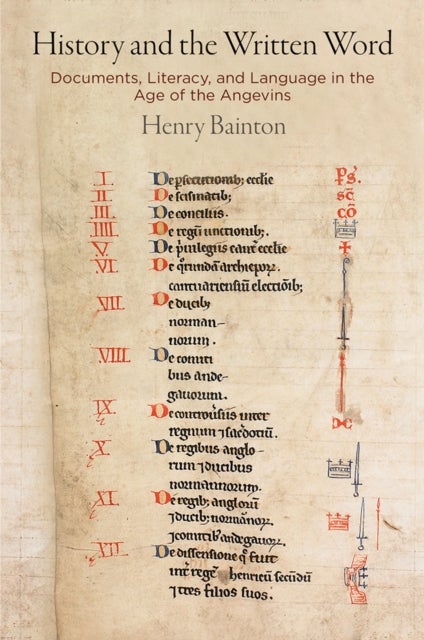 History and the Written Word
Documents, Literacy, and Language in the
Age of the Angevins
Henry Bainton
I De psecutionib; ecclie ps̄.
II De scismatib; sc̄
III. De conciliis. cō
IIII. De regū unctionib;.
V. De p̓uilegiis cant̓ ecclie
VI. De q̓rundā archiepoꝝ.
cantuariensiū electiōib;
VII De ducib;
norman-
norum.
VIII. De comiti
bus ande-
gauorum.
IX De controu̓siis inter
regnum ⁊ sac̓dotiū.
X. De regibus anglo-
rum ⁊ ducibus
normannorum.
XI De regib; anglorū
⁊ ducib; normānoꝝ.
⁊ comitib; andegauoꝝ.
XII De dissensione q̄ fuit
int̓ regē henricū secūdū
⁊ tres filios suos.